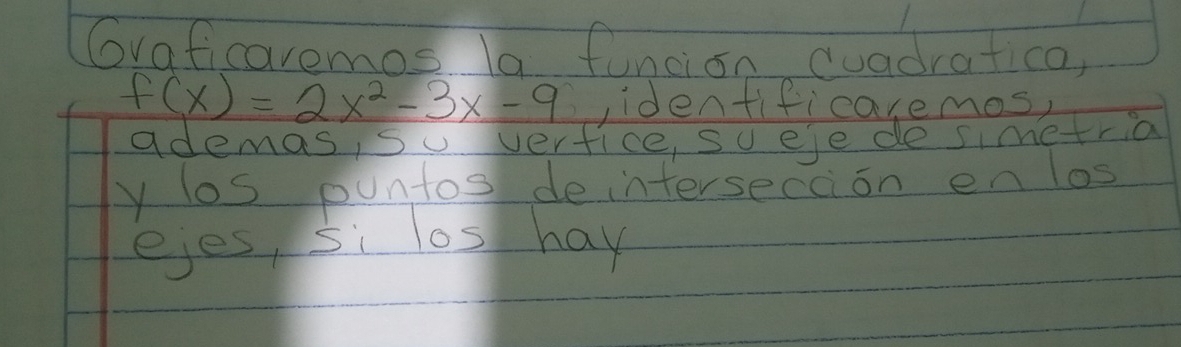 Graficaremos la función cuadratica,
f(x) = 2x² - 3x - 9, identificaremos,
ademas, su vertice, su eje de simetria
y los puntos de intersección en los
ejes, si los hay